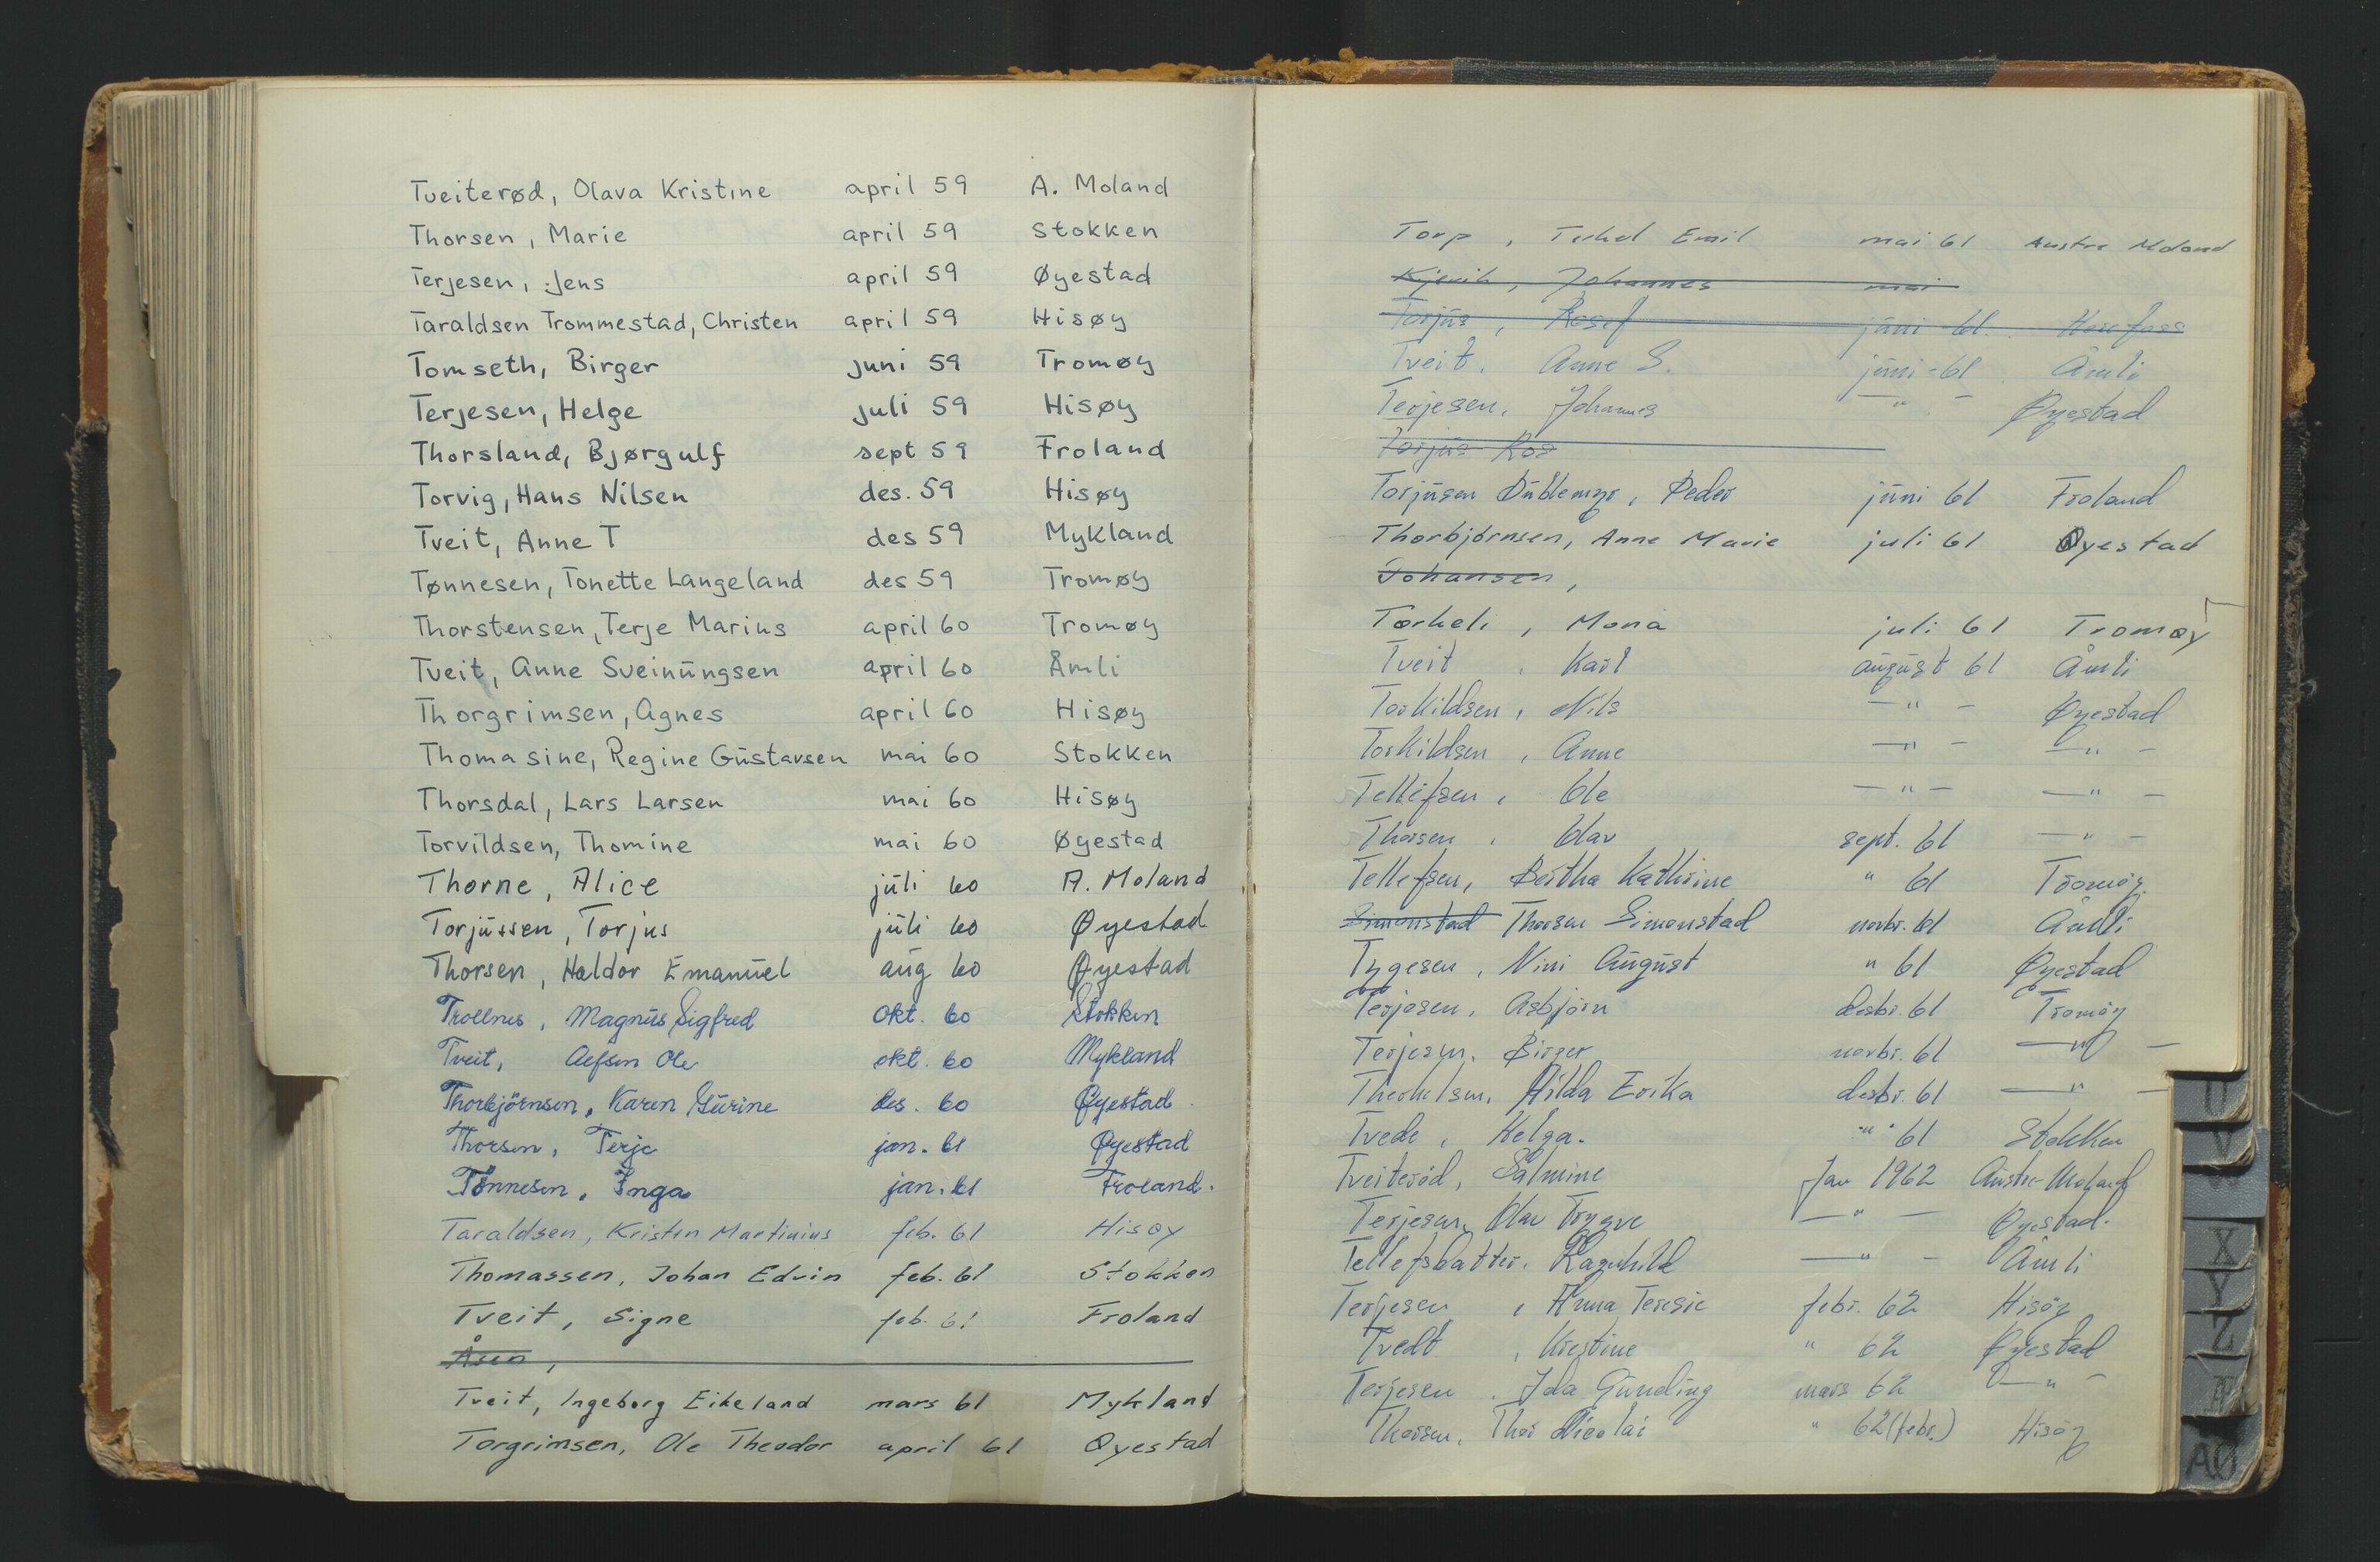 Tveiterød, Olava Kristine april 59 A. Moland
Thorsen, Marie april 59 Stokken
Terjesen, Jens april 59 Øyestad
Taraldsen Trommestad, Christen april 59 Hisøy
Tomseth, Birger juni 59 Tromøy
Terjesen, Helge juli 59 Hisøy
Thorsland, Bjørgulf sept 59 Froland
Torvig, Hans Nilsen des. 59 Hisøy
Tveit, Anne T des 59 Mykland
Tønnesen, Tonette Langeland des 59 Tromøy
Thorstensen, Terje Marius april 60 Tromøy
Tveit, Anne Sveinungsen april 60 Åmli
Thorgrimsen, Agnes april 60 Hisøy
Thomasine, Regine Gustavsen mai 60 Stokken
Thorsdal, Lars Larsen mai 60 Hisøy
Torvildsen, Thomine mai 60 Øyestad
Thorne, Alice juli 60 A. Moland
Torjussen, Torjus juli 60 Øyestad
Thorsen, Haldor Emanuel aug 60 Øyestad
Trollnes, Magnus Sigfred okt. 60 Stokken
Tveit, Ole okt. 60 Mykland
Thorbjörnsen, Karen Gurine des. 60 Øyestad
Thorsen, Terje jan. 61 Øyestad
Tönnesen, Inga jan. 61 Froland.
Taraldsen, Kristen Martinius feb. 61 Hisøy
Thomassen, Johan Edvin feb. 61 Stokken
Tveit, Signe feb. 61 Froland
Åsen,
Tveit, Ingeborg Eikeland mars 61 Mykland
Torgrimsen, Ole Theodor april 61 Øyestad
Torp, Emil mai 61 Austre Moland
Kjevik, Johannes mai
Torjus, juni 61 Herefoss
Tveit, Anne S. juni-61 Åmli
Terjesen, Johannes —"— Øyestad
Torjus Ros
Torjusen Dublemyr, Peder juni 61 Froland
Thorbjörnsen, Anne Marie juli 61 Øyestad
Johansen,
Torkeli, Mona juli 61 Tromøy
Tveit, Karl august 61 Åmli
Torkildsen, Nils —"— Øyestad
Torkildsen, Anne —"— —"—
Tellefsen, Ole —"— —"—
Thorsen, Olav sept. 61 —"—
Tellefsen, Bertha Kathrine " 61 Tromöy.
Simonstad Thorsen Simonstad novbr. 61 Åmli
Tygesen, Nini August " 61 Øyestad
Terjesen, Asbjörn desbr. 61 Tromöy
Terjesen, Birger novbr. 61 —"—
Hilda Erika desbr. 61 —"—
Tvede, Helga. " 61 Stokken
Tveiteröd, Salmine Jan 1962 Austre-Moland
Terjesen, Olav Trygve —"— Øyestad.
Tellefsdatter, Ragnhild —"— Åmli
Terjesen, Anna Teresie febr. 62 Hisöy
Tvedt, Kristine " 62 Øyestad
Terjesen, Ida Gunding mars 62 —"—
Thorsen, Thor Nicolai " 62 (febr.) Hisöy
U
V
X
Y
Z
Æ
AØ